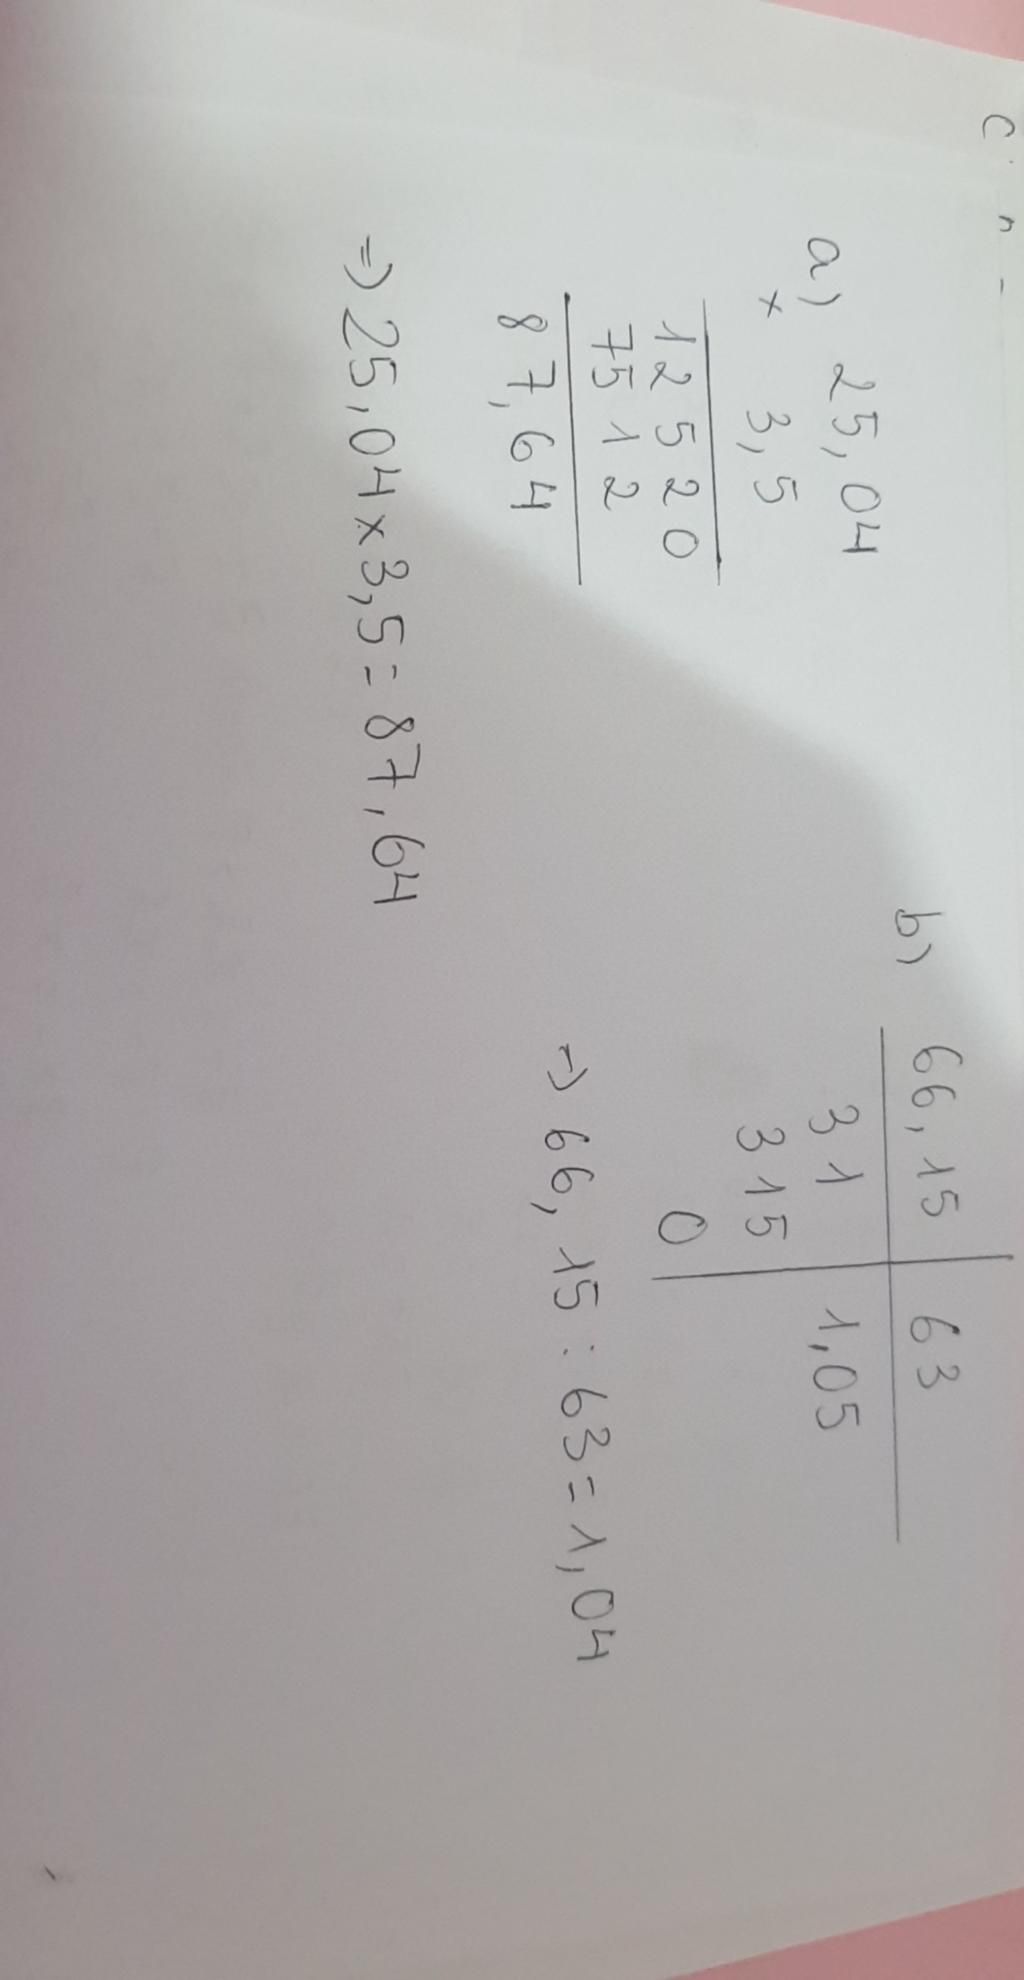 a) 25,04
x 3,5
12520
7512
87,64
=> 25,04 x 3,5 = 87,64
b) 66,15 63
31 1,05
315
0
=> 66,15 : 63 = 1,04